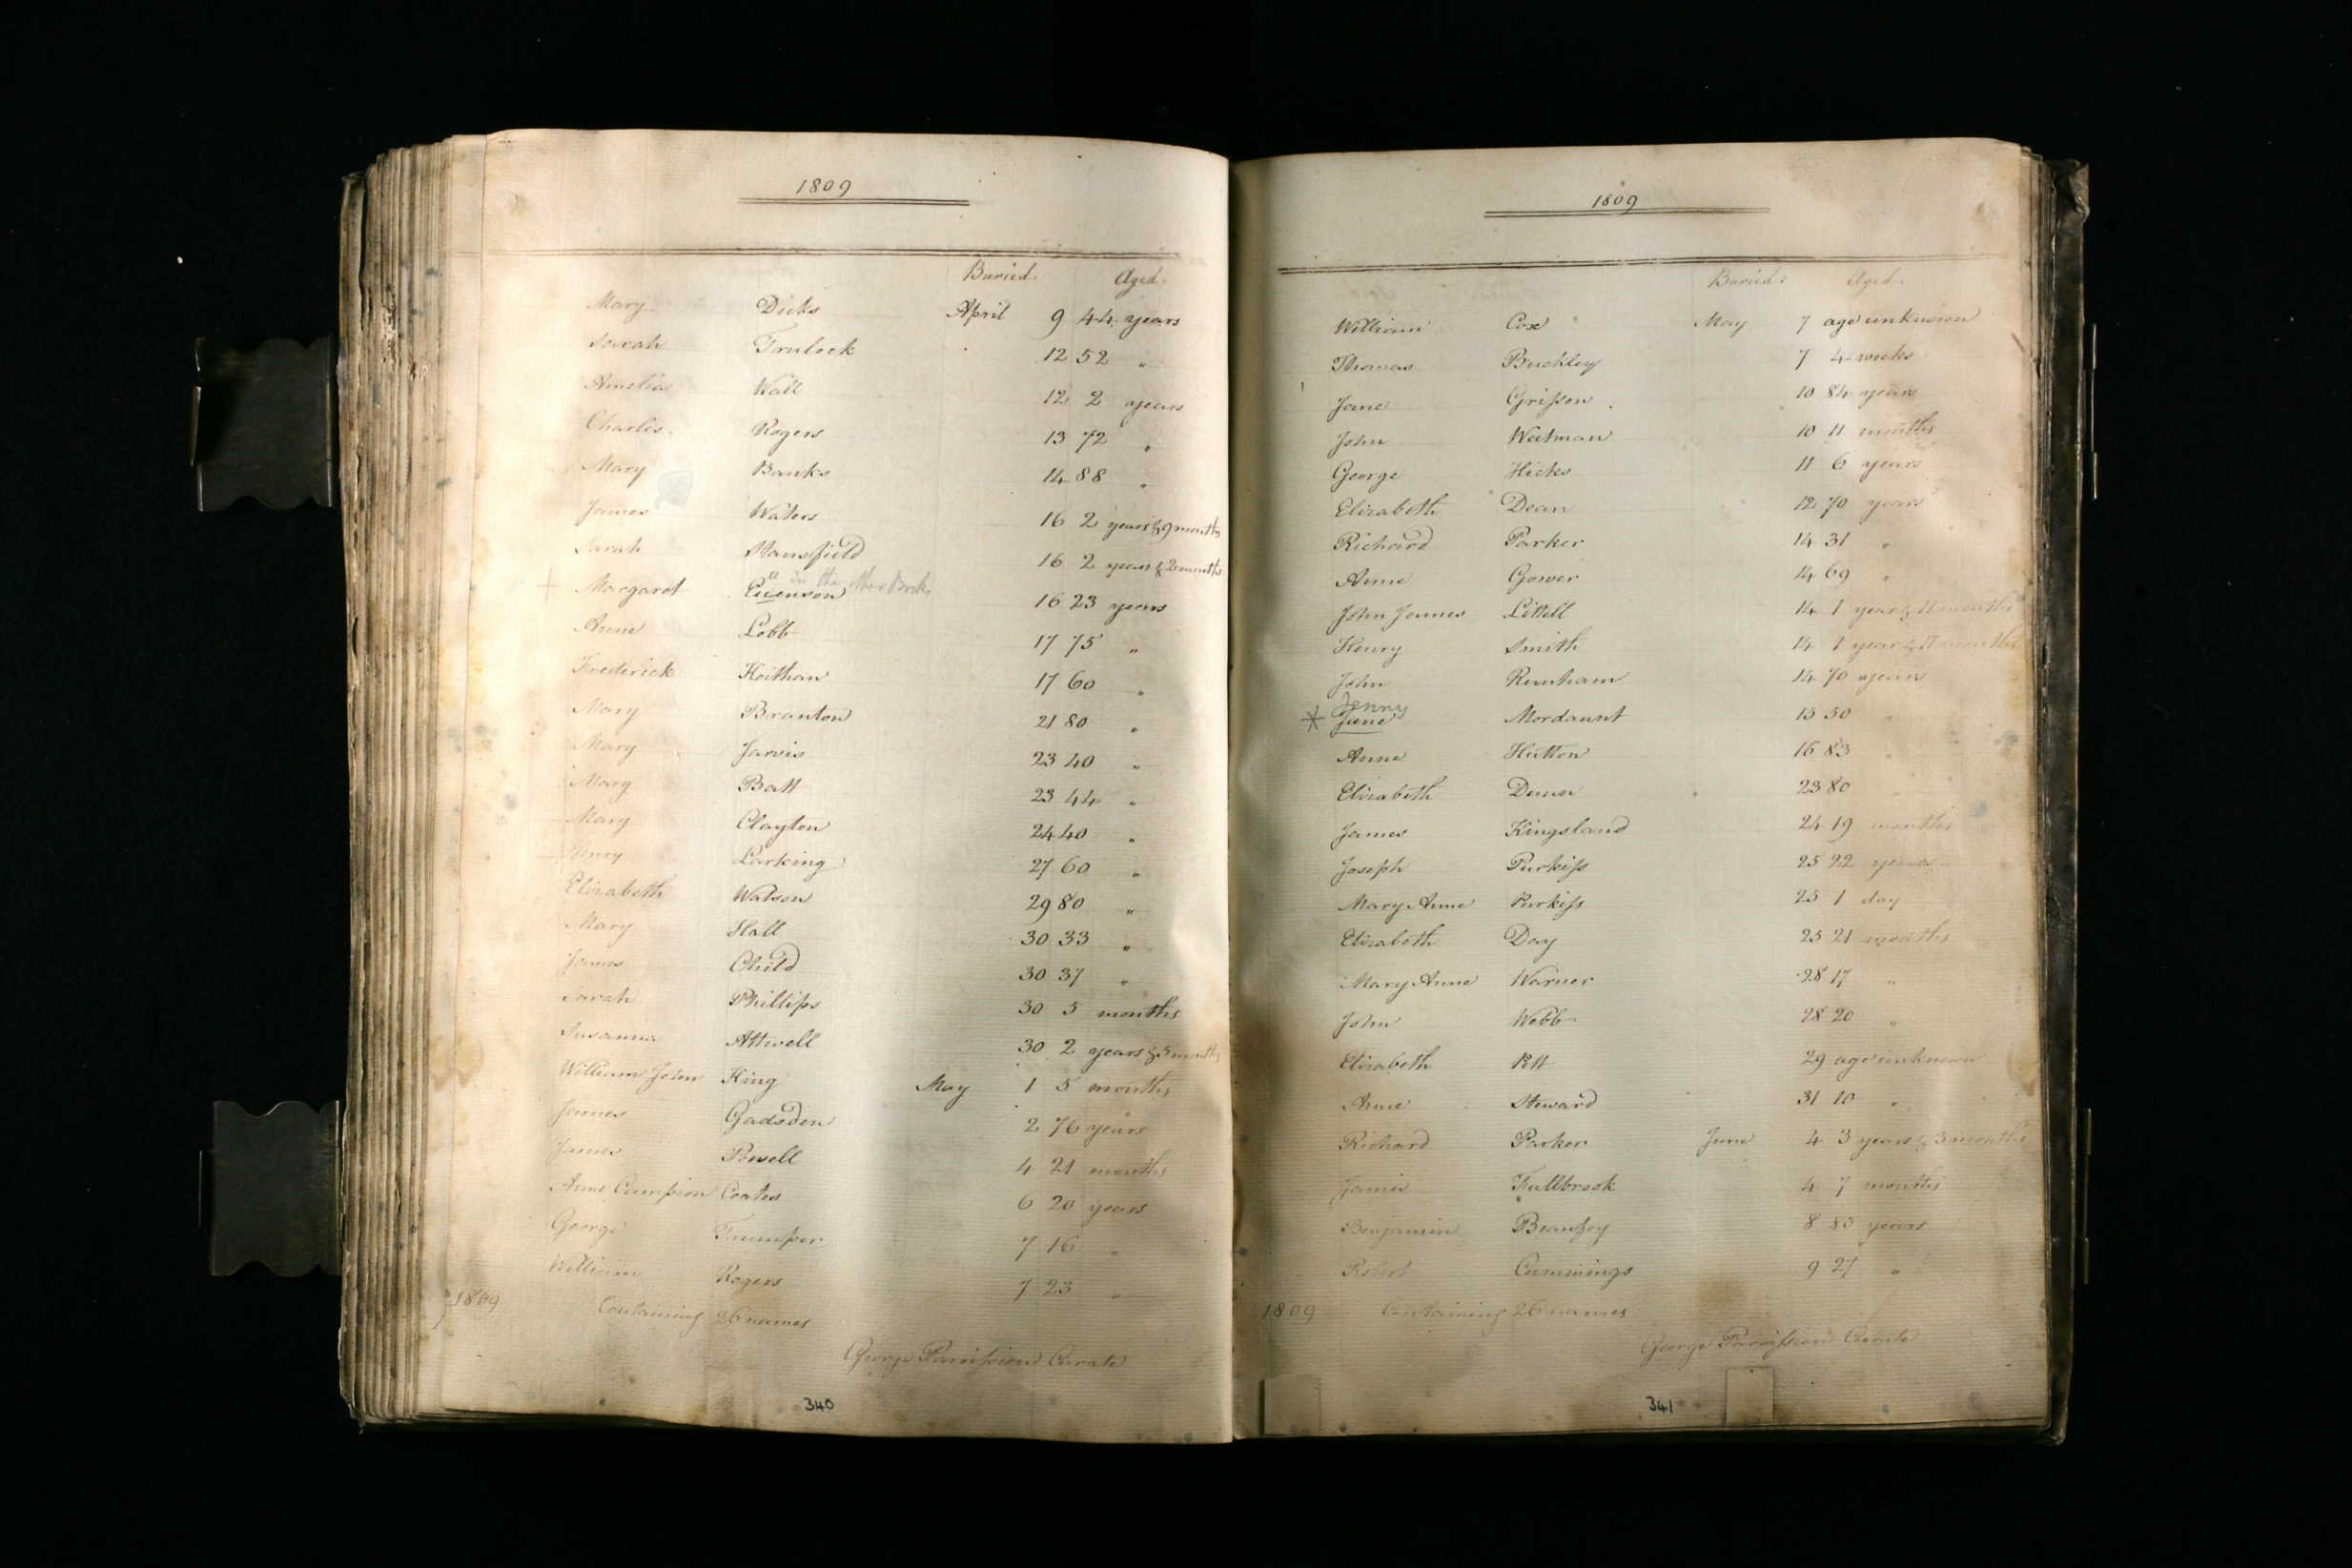 1809
Buried. Aged.
Mary Dicks April 9 44 years
Sarah Trulock 12 52 "
Amelia Wall 12 2 years
Charles Rogers 13 72 "
Mary Banks 14 88 "
James Waters 16 2 years & 9 months
Sarah Mansfield 16 2 years & 2 months
in the other Book
+ Margaret 16 23 years
Anne Lobb 17 75 "
Frederick Keithan 17 60 "
Mary Branton 21 80 "
Mary Jarvis 23 40 "
Mary Batt 23 44 "
Mary Clayton 24 40 "
Henry Larking 27 60 "
Elizabeth Watson 29 80 "
Mary Hall 30 33 "
James Child 30 37 "
Sarah Phillips 30 5 months
Susanna Attwell 30 2 years & 5 months
William John King May 1 5 months
James Gadsden 2 76 years
James Powell 4 21 months
Anne Coates 6 20 years
George Trumper 7 16 "
William Rogers 7 23 "
1809 Containing 26 names
George Curate
340
1809
Buried: Aged:
William Cox May 7 age unknown
Thomas Buckley 7 4 weeks
Jane Grisson 10 84 years
John Weetman 10 11 months
George Hicks 11 6 years
Elizabeth Dean 12 70 years
Richard Parker 14 31 "
Anne Gower 14 69 "
John James Littell 14 1 year & 11 months
Henry Smith 14 1 year & months
John Runham 14 70 years
Jenny
* Jane Mordaunt 15 50 "
Anne Hutton 16 83 "
Elizabeth Dunn 23 80
James Kingsland 24 19 months
Joseph Purkiss 25 22 years
Mary Anne Purkiss 25 1 day
Elizabeth Day 25 21 months
Mary Anne Warner 28 17 "
John Webb 28 20 "
Elizabeth Pitt 29 age unknown
Anne Steward 31 10 "
Richard Parker June 4 3 years & 3 months
James Fullbrook 4 7 months
Benjamin Beaufoy 8 80 years
Robert Cummings 9 27 "
1809 Containing 26 names
George Curate
341